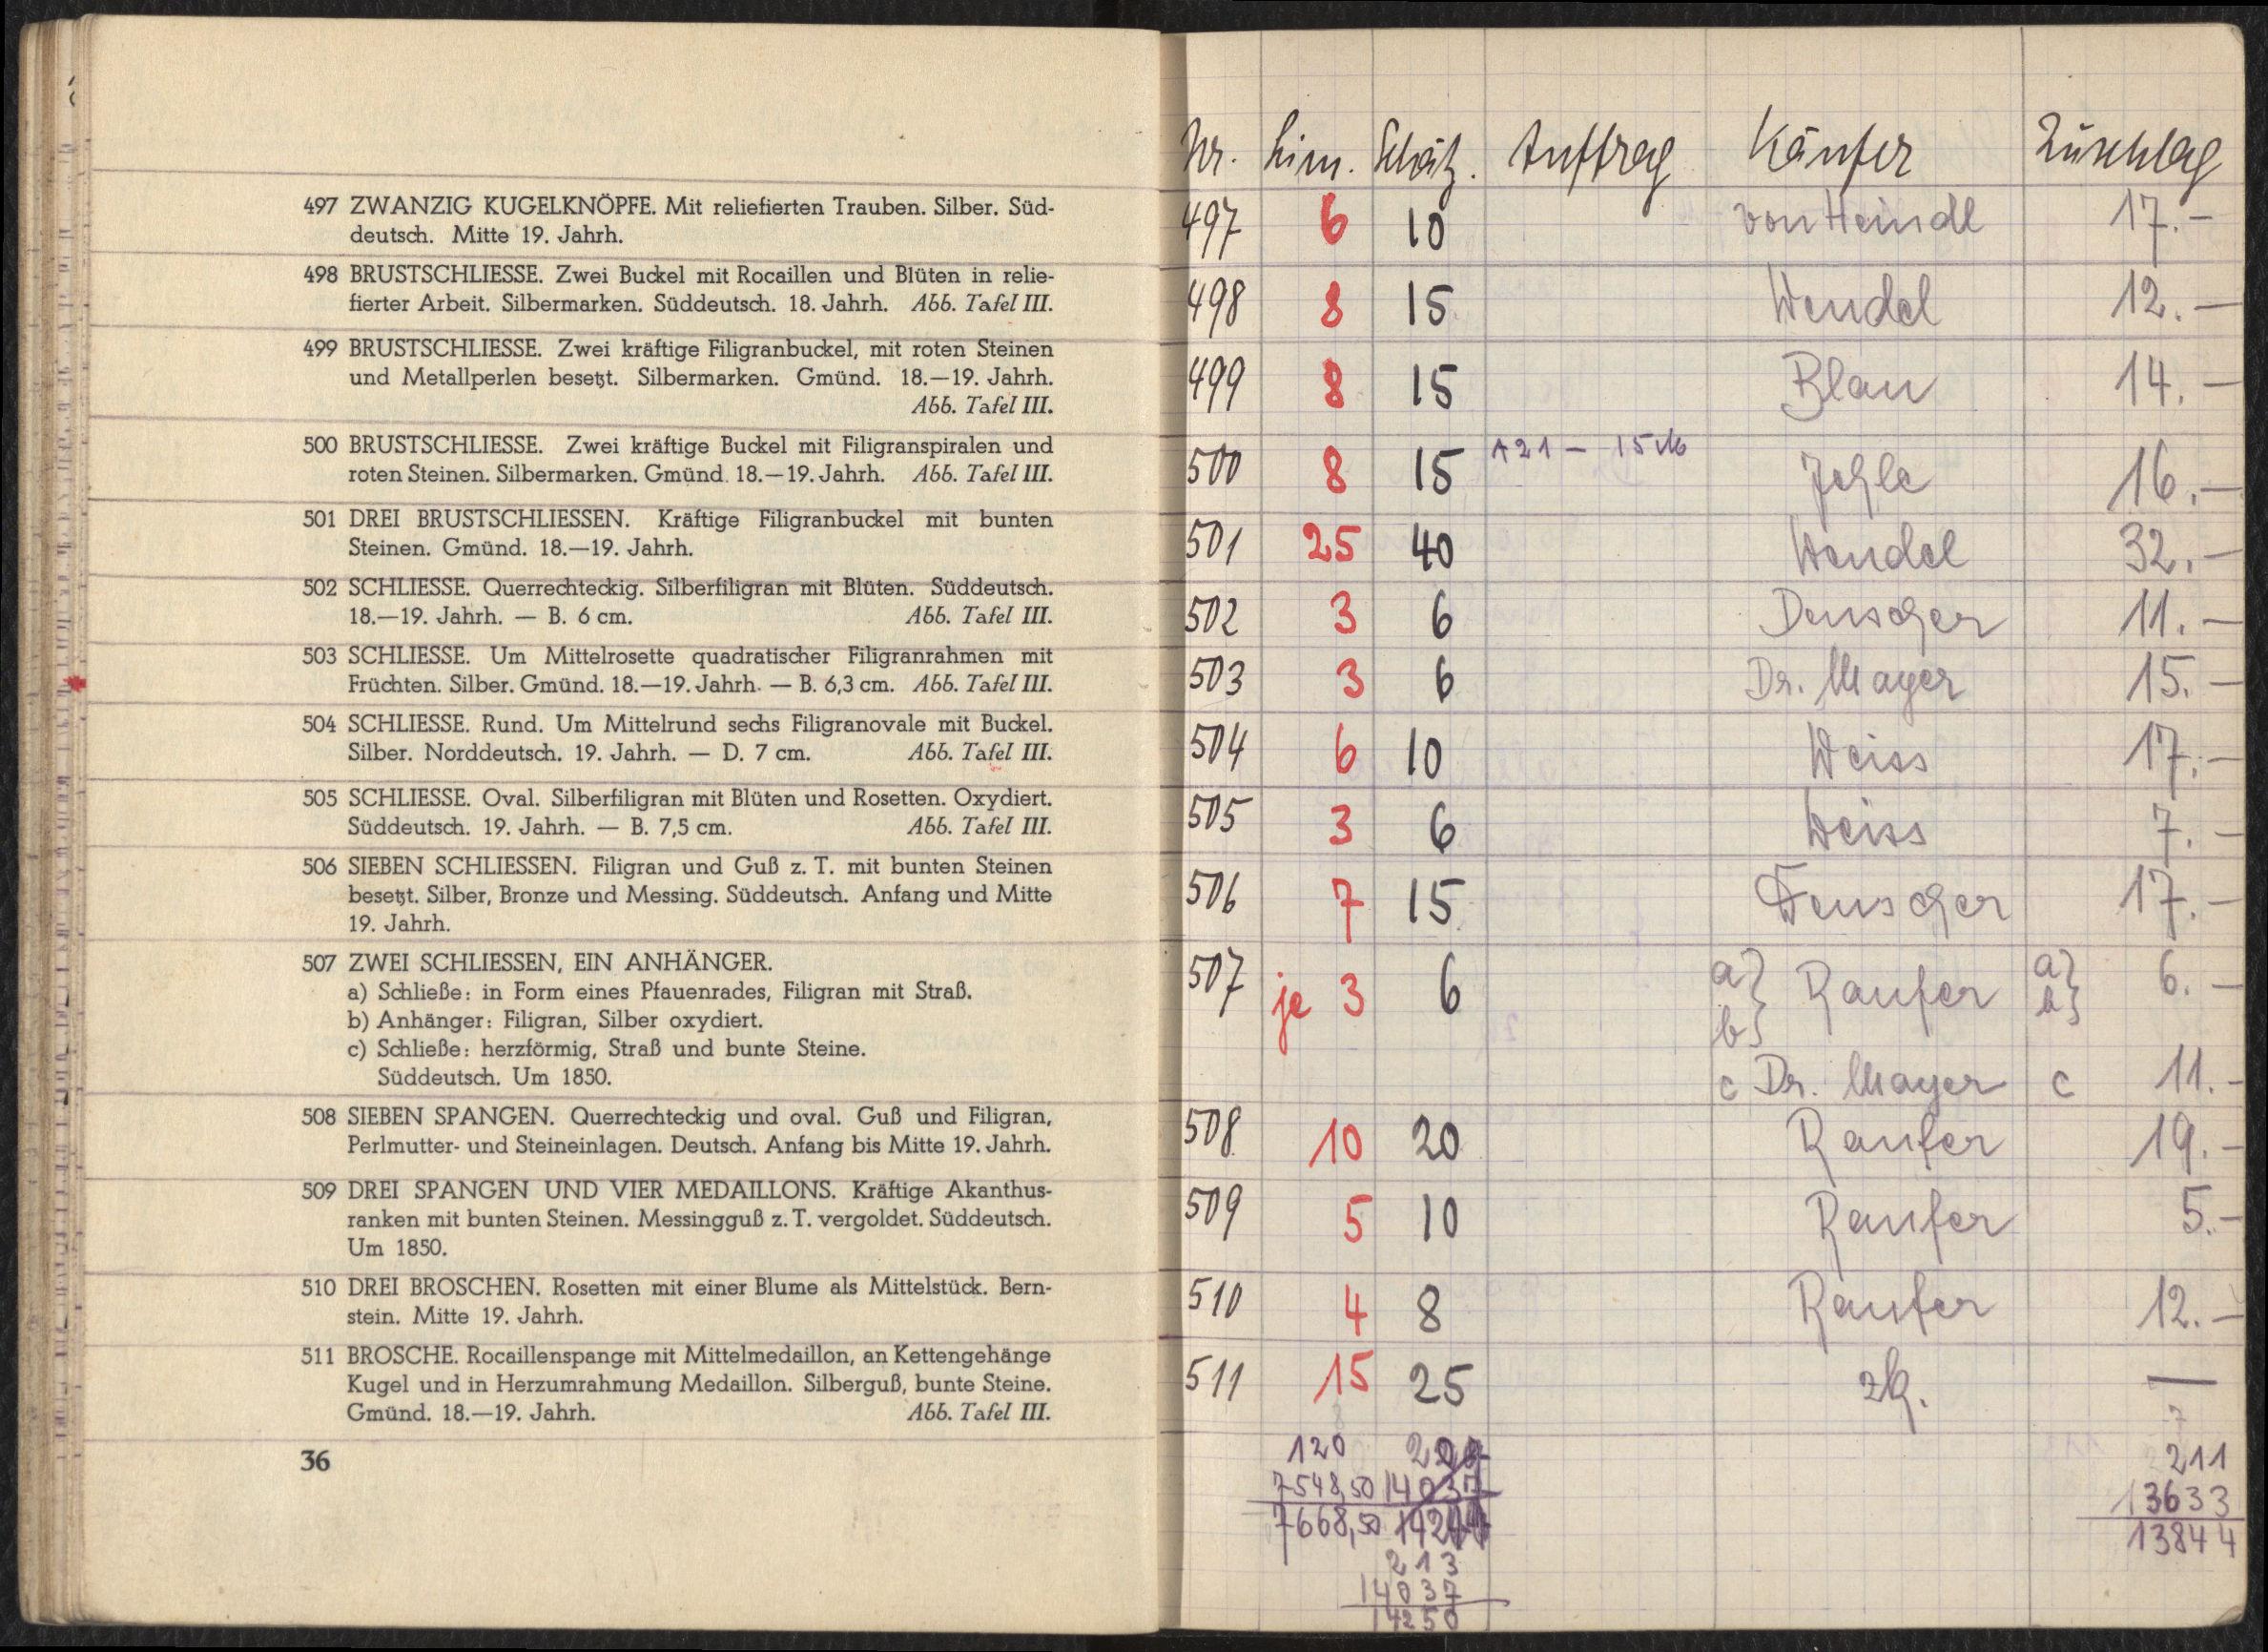 497 ZWANZIG KUGELKNÖPFE. Mit reliefierten Trauben. Silber. Süd-
deutsch. Mitte 19. Jahrh.
498 BRUSTSCHLIESSE. Zwei Buckel mit Rocaillen und Blüten in relie-
fierter Arbeit. Silbermarken. Süddeutsch. 18. Jahrh. Abb. Tafel III.
499 BRUSTSCHLIESSE. Zwei kräftige Filigranbuckel, mit roten Steinen
und Metallperlen besetzt. Silbermarken. Gmünd. 18.—19. Jahrh.
Abb. Tafel III.
500 BRUSTSCHLIESSE. Zwei kräftige Buckel mit Filigranspiralen und
roten Steinen. Silbermarken. Gmünd. 18.—19. Jahrh. Abb. Tafel III.
501 DREI BRUSTSCHLIESSEN. Kräftige Filigranbuckel mit bunten
Steinen. Gmünd. 18.—19. Jahrh.
502 SCHLIESSE. Querrechteckig. Silberfiligran mit Blüten. Süddeutsch.
18.—19. Jahrh. — B. 6 cm. Abb. Tafel III.
503 SCHLIESSE. Um Mittelrosette quadratischer Filigranrahmen mit
Früchten. Silber. Gmünd. 18.—19. Jahrh. — B. 6,3 cm. Abb. Tafel III.
504 SCHLIESSE. Rund. Um Mittelrund sechs Filigranovale mit Buckel.
Silber. Norddeutsch. 19. Jahrh. — D. 7 cm. Abb. Tafel III.
505 SCHLIESSE. Oval. Silberfiligran mit Blüten und Rosetten. Oxydiert.
Süddeutsch. 19. Jahrh. — B. 7,5 cm. Abb. Tafel III.
506 SIEBEN SCHLIESSEN. Filigran und Guß z. T. mit bunten Steinen
besetzt. Silber, Bronze und Messing. Süddeutsch. Anfang und Mitte
19. Jahrh.
507 ZWEI SCHLIESSEN, EIN ANHÄNGER.
a) Schließe: in Form eines Pfauenrades, Filigran mit Straß.
b) Anhänger: Filigran, Silber oxydiert.
c) Schließe: herzförmig, Straß und bunte Steine.
Süddeutsch. Um 1850.
508 SIEBEN SPANGEN. Querrechteckig und oval. Guß und Filigran,
Perlmutter- und Steineinlagen. Deutsch. Anfang bis Mitte 19. Jahrh.
509 DREI SPANGEN UND VIER MEDAILLONS. Kräftige Akanthus-
ranken mit bunten Steinen. Messingguß z. T. vergoldet. Süddeutsch.
Um 1850.
510 DREI BROSCHEN. Rosetten mit einer Blume als Mittelstück. Bern-
stein. Mitte 19. Jahrh.
511 BROSCHE. Rocaillenspange mit Mittelmedaillon, an Kettengehänge
Kugel und in Herzumrahmung Medaillon. Silberguß, bunte Steine.
Gmünd. 18.—19. Jahrh. Abb. Tafel III.
36
Nr. Lim. Schätz. Auftrag Käufer Zuschlag
497 6 10 von Heindl 17.–
498 8 15 Wendel 12.–
499 8 15 Blau 14.–
500 8 15 A 21 – 15 M Jehle 16.–
501 25 40 Wendel 32.–
502 3 6 Denscher 11.–
503 3 6 Dr. Mayer 15.–
504 6 10 Weiss 17.–
505 3 6 Weiss 7.–
506 7 15 17.–
507 je 3 6 a} b} Raufer a} b} 6.–
c Dr. Mayer c 11.–
508 10 20 Raufer 19.–
509 5 10 Raufer 5.–
510 4 8 Raufer 12.–
511 15 25 zk. —
120 211
7548,50 14037 13633
7668,50 13844
213
14037
14250